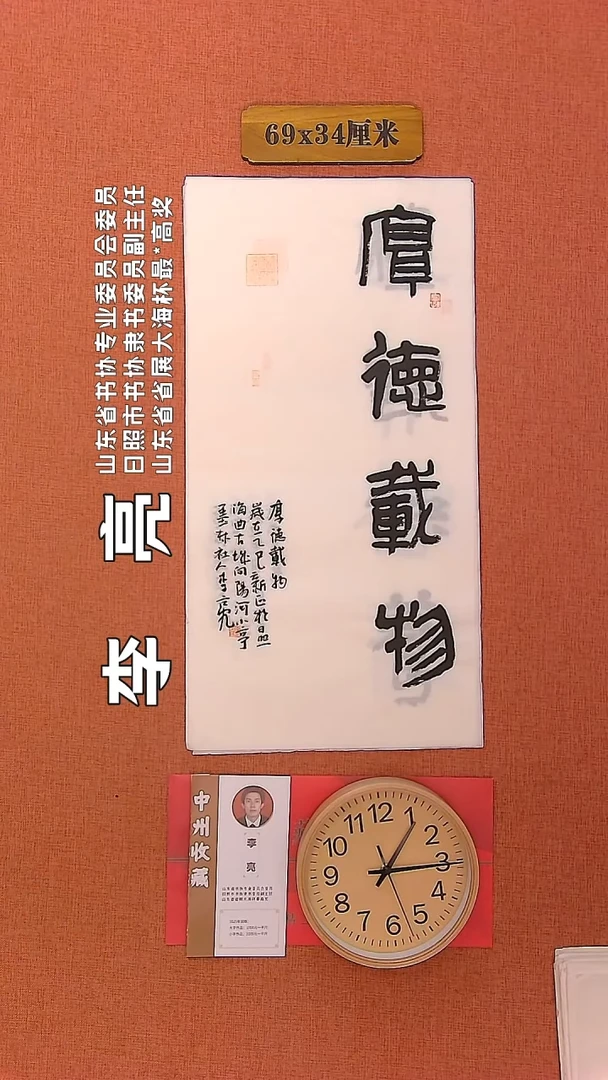 69x34厘米
厚德載物
厚德載物
歲在乙巳新正於日照
海曲古城向陽河小亭
李亮
山东省书协专业委员会委员
日照市书协隶书委员副主任
山东省省展大海杯最*高奖
李亮
12
1
2
3
4
5
6
7
8
9
10
11